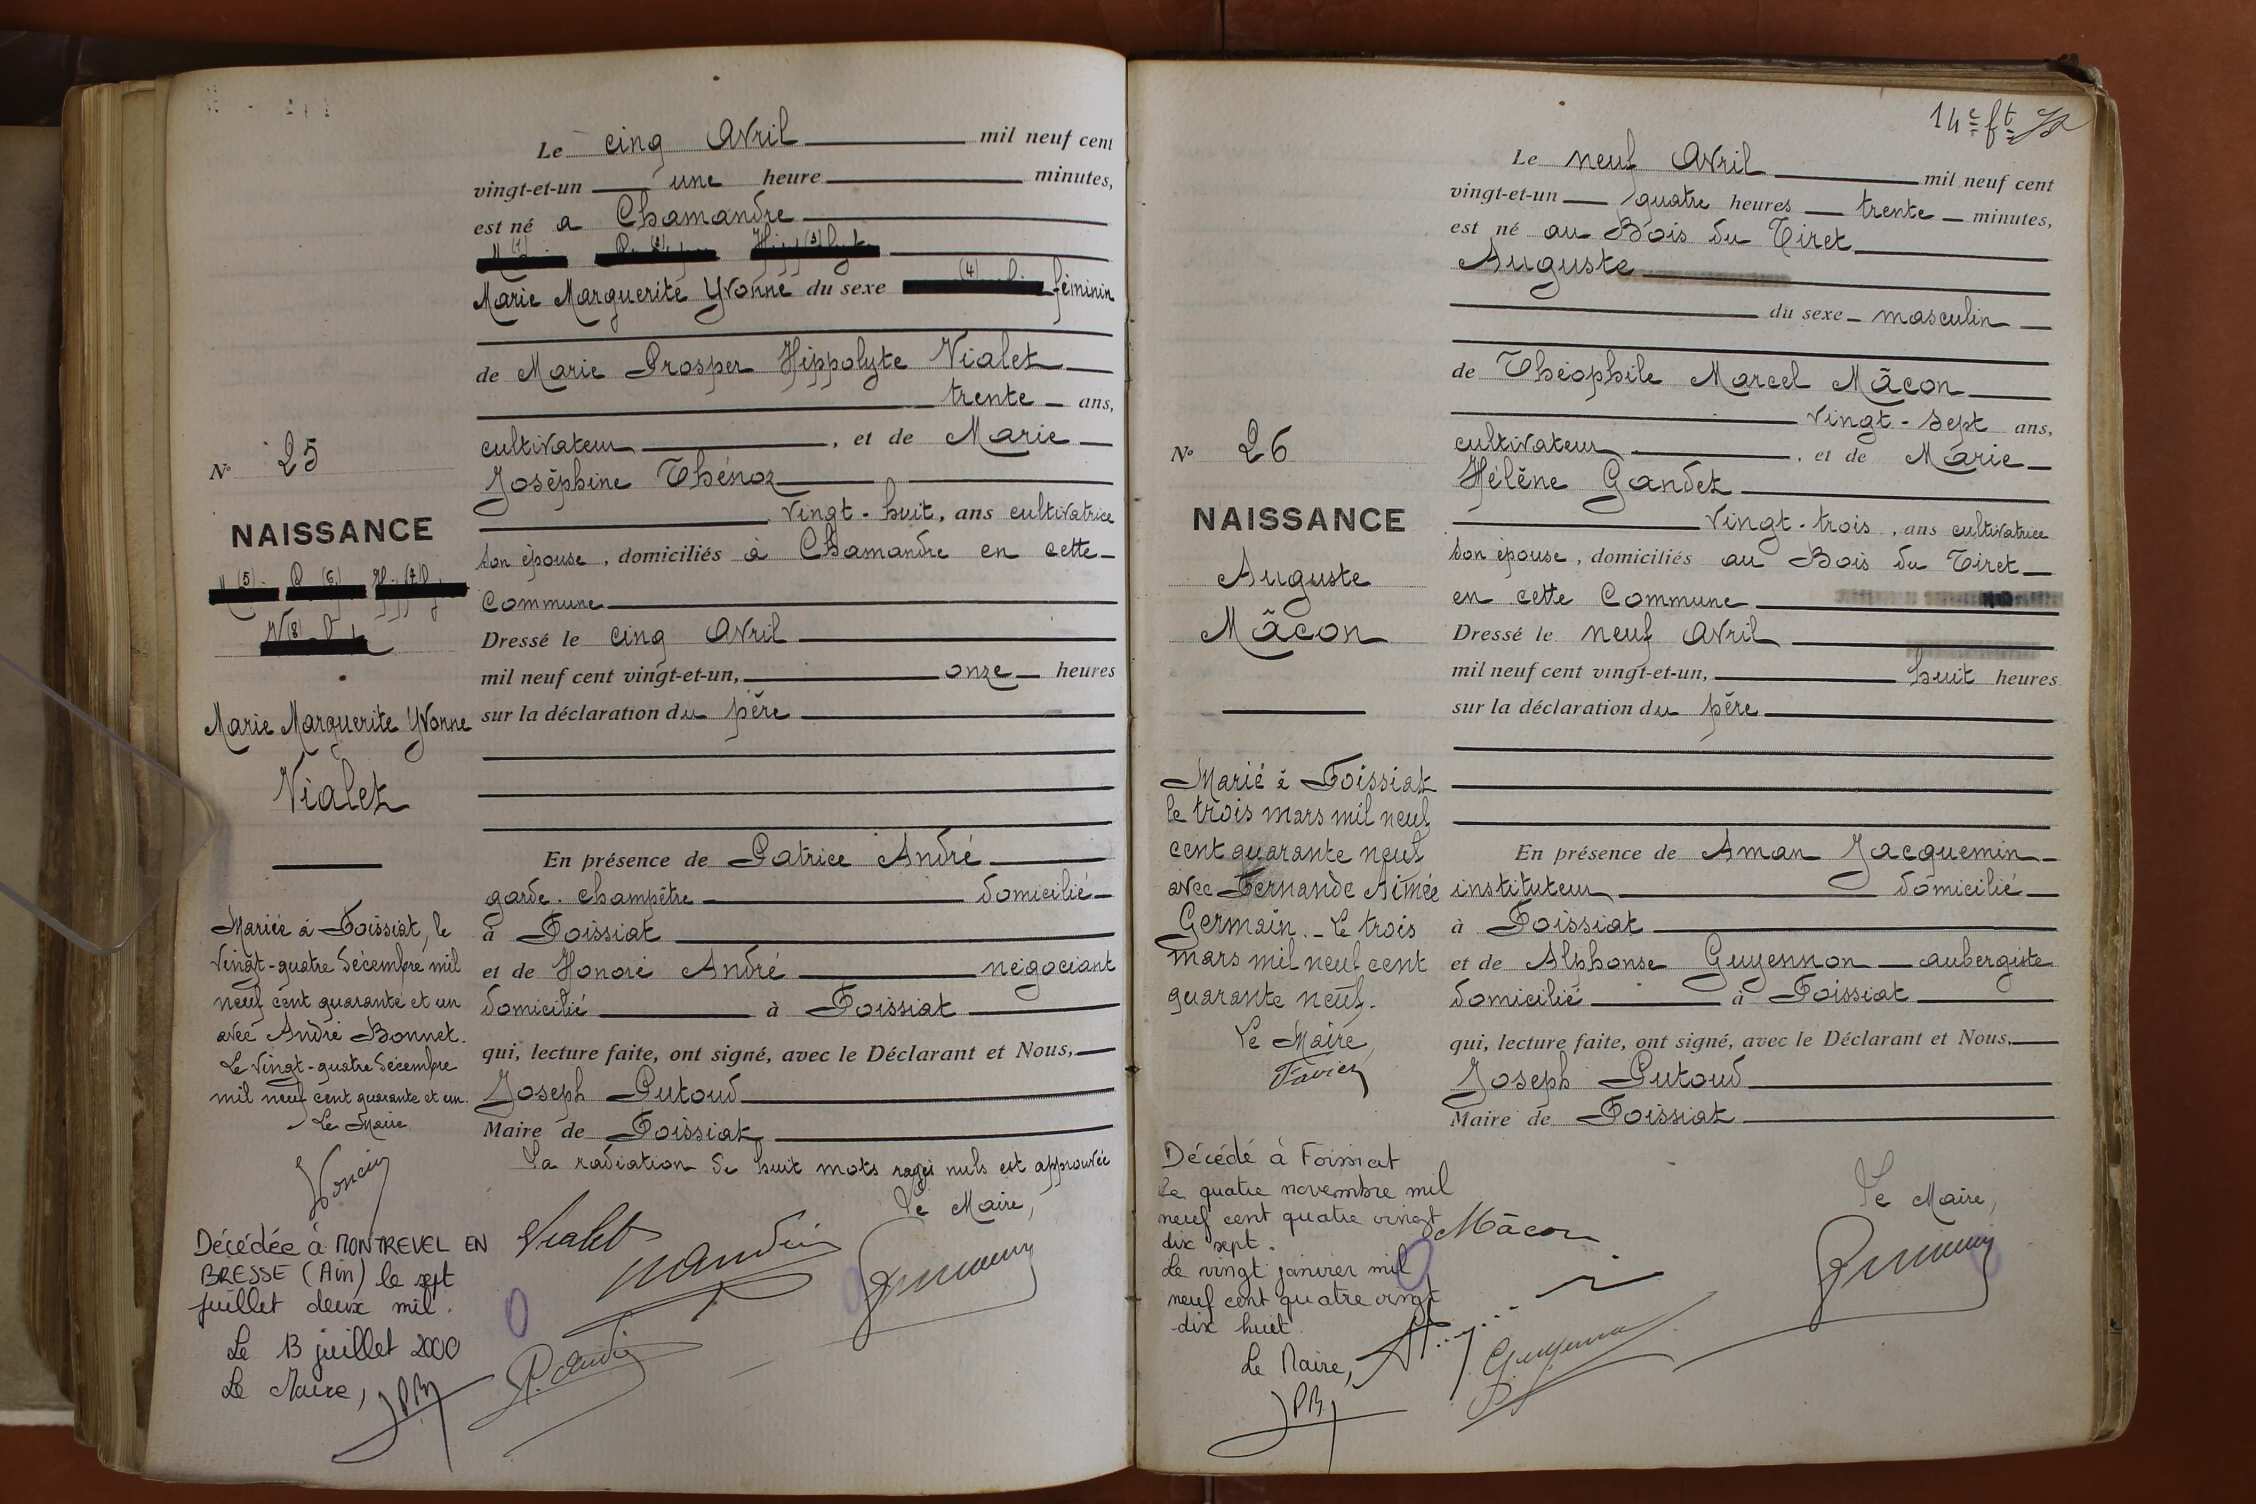 Le cinq Avril mil neuf cent
vingt-et-un une heure minutes,
est né a Chamandre
(1) (2) (3)
Marie Marguerite Yvonne du sexe (4) féminin
de Marie Prosper Hippolyte Vialet
trente ans,
cultivateur, et de Marie
Joséphine Thénoz
vingt-huit, ans cultivatrice
son épouse, domiciliés à Chamandre en cette
Commune
Dressé le cinq Avril
mil neuf cent vingt-et-un, onze heures
sur la déclaration du père
En présence de Patrice André
garde-champêtre domicilié
à Foissiat
et de Honoré André négociant
domicilié à Foissiat
qui, lecture faite, ont signé, avec le Déclarant et Nous,
Joseph Putoud
Maire de Foissiat
La radiation de huit mots rayés nuls est approuvée
Le Maire,
Vialet
N° 25
NAISSANCE
(5) (6) (7)
(8)
Marie Marguerite Yvonne
Vialet
Mariée à Foissiat, le
vingt-quatre décembre mil
neuf cent quarante et un
avec André Bonnet.
Le vingt-quatre décembre
mil neuf cent quarante et un.
Le Maire
Décédée à MONTREVEL EN
BRESSE (Ain) le sept
juillet deux mil.
Le 13 juillet 2000
Le Maire,
14e ft
Le neuf Avril mil neuf cent
vingt-et-un quatre heures trente minutes,
est né au Bois du Tiret
Auguste
du sexe masculin
de Théophile Marcel Mâcon
vingt-sept ans,
cultivateur, et de Marie
Hélène Gandet
vingt-trois, ans cultivatrice
son épouse, domiciliés au Bois du Tiret
en cette Commune
Dressé le neuf Avril
mil neuf cent vingt-et-un, huit heures
sur la déclaration du père
En présence de Aman Jacquemin
instituteur domicilié
à Foissiat
et de Alphonse Guyennon aubergiste
domicilié à Foissiat
qui, lecture faite, ont signé, avec le Déclarant et Nous,
Joseph Putoud
Maire de Foissiat
Le Maire,
Mâcon
N° 26
NAISSANCE
Auguste
Mâcon
Marié à Foissiat
le trois mars mil neuf
cent quarante neuf
avec Fernande Aimée
Germain. - Le trois
mars mil neuf cent
quarante neuf.
Le Maire,
Favier
Décédé à Foissiat
Le quatre novembre mil
neuf cent quatre vingt
dix sept.
Le vingt janvier mil
neuf cent quatre vingt
dix huit.
Le Maire,